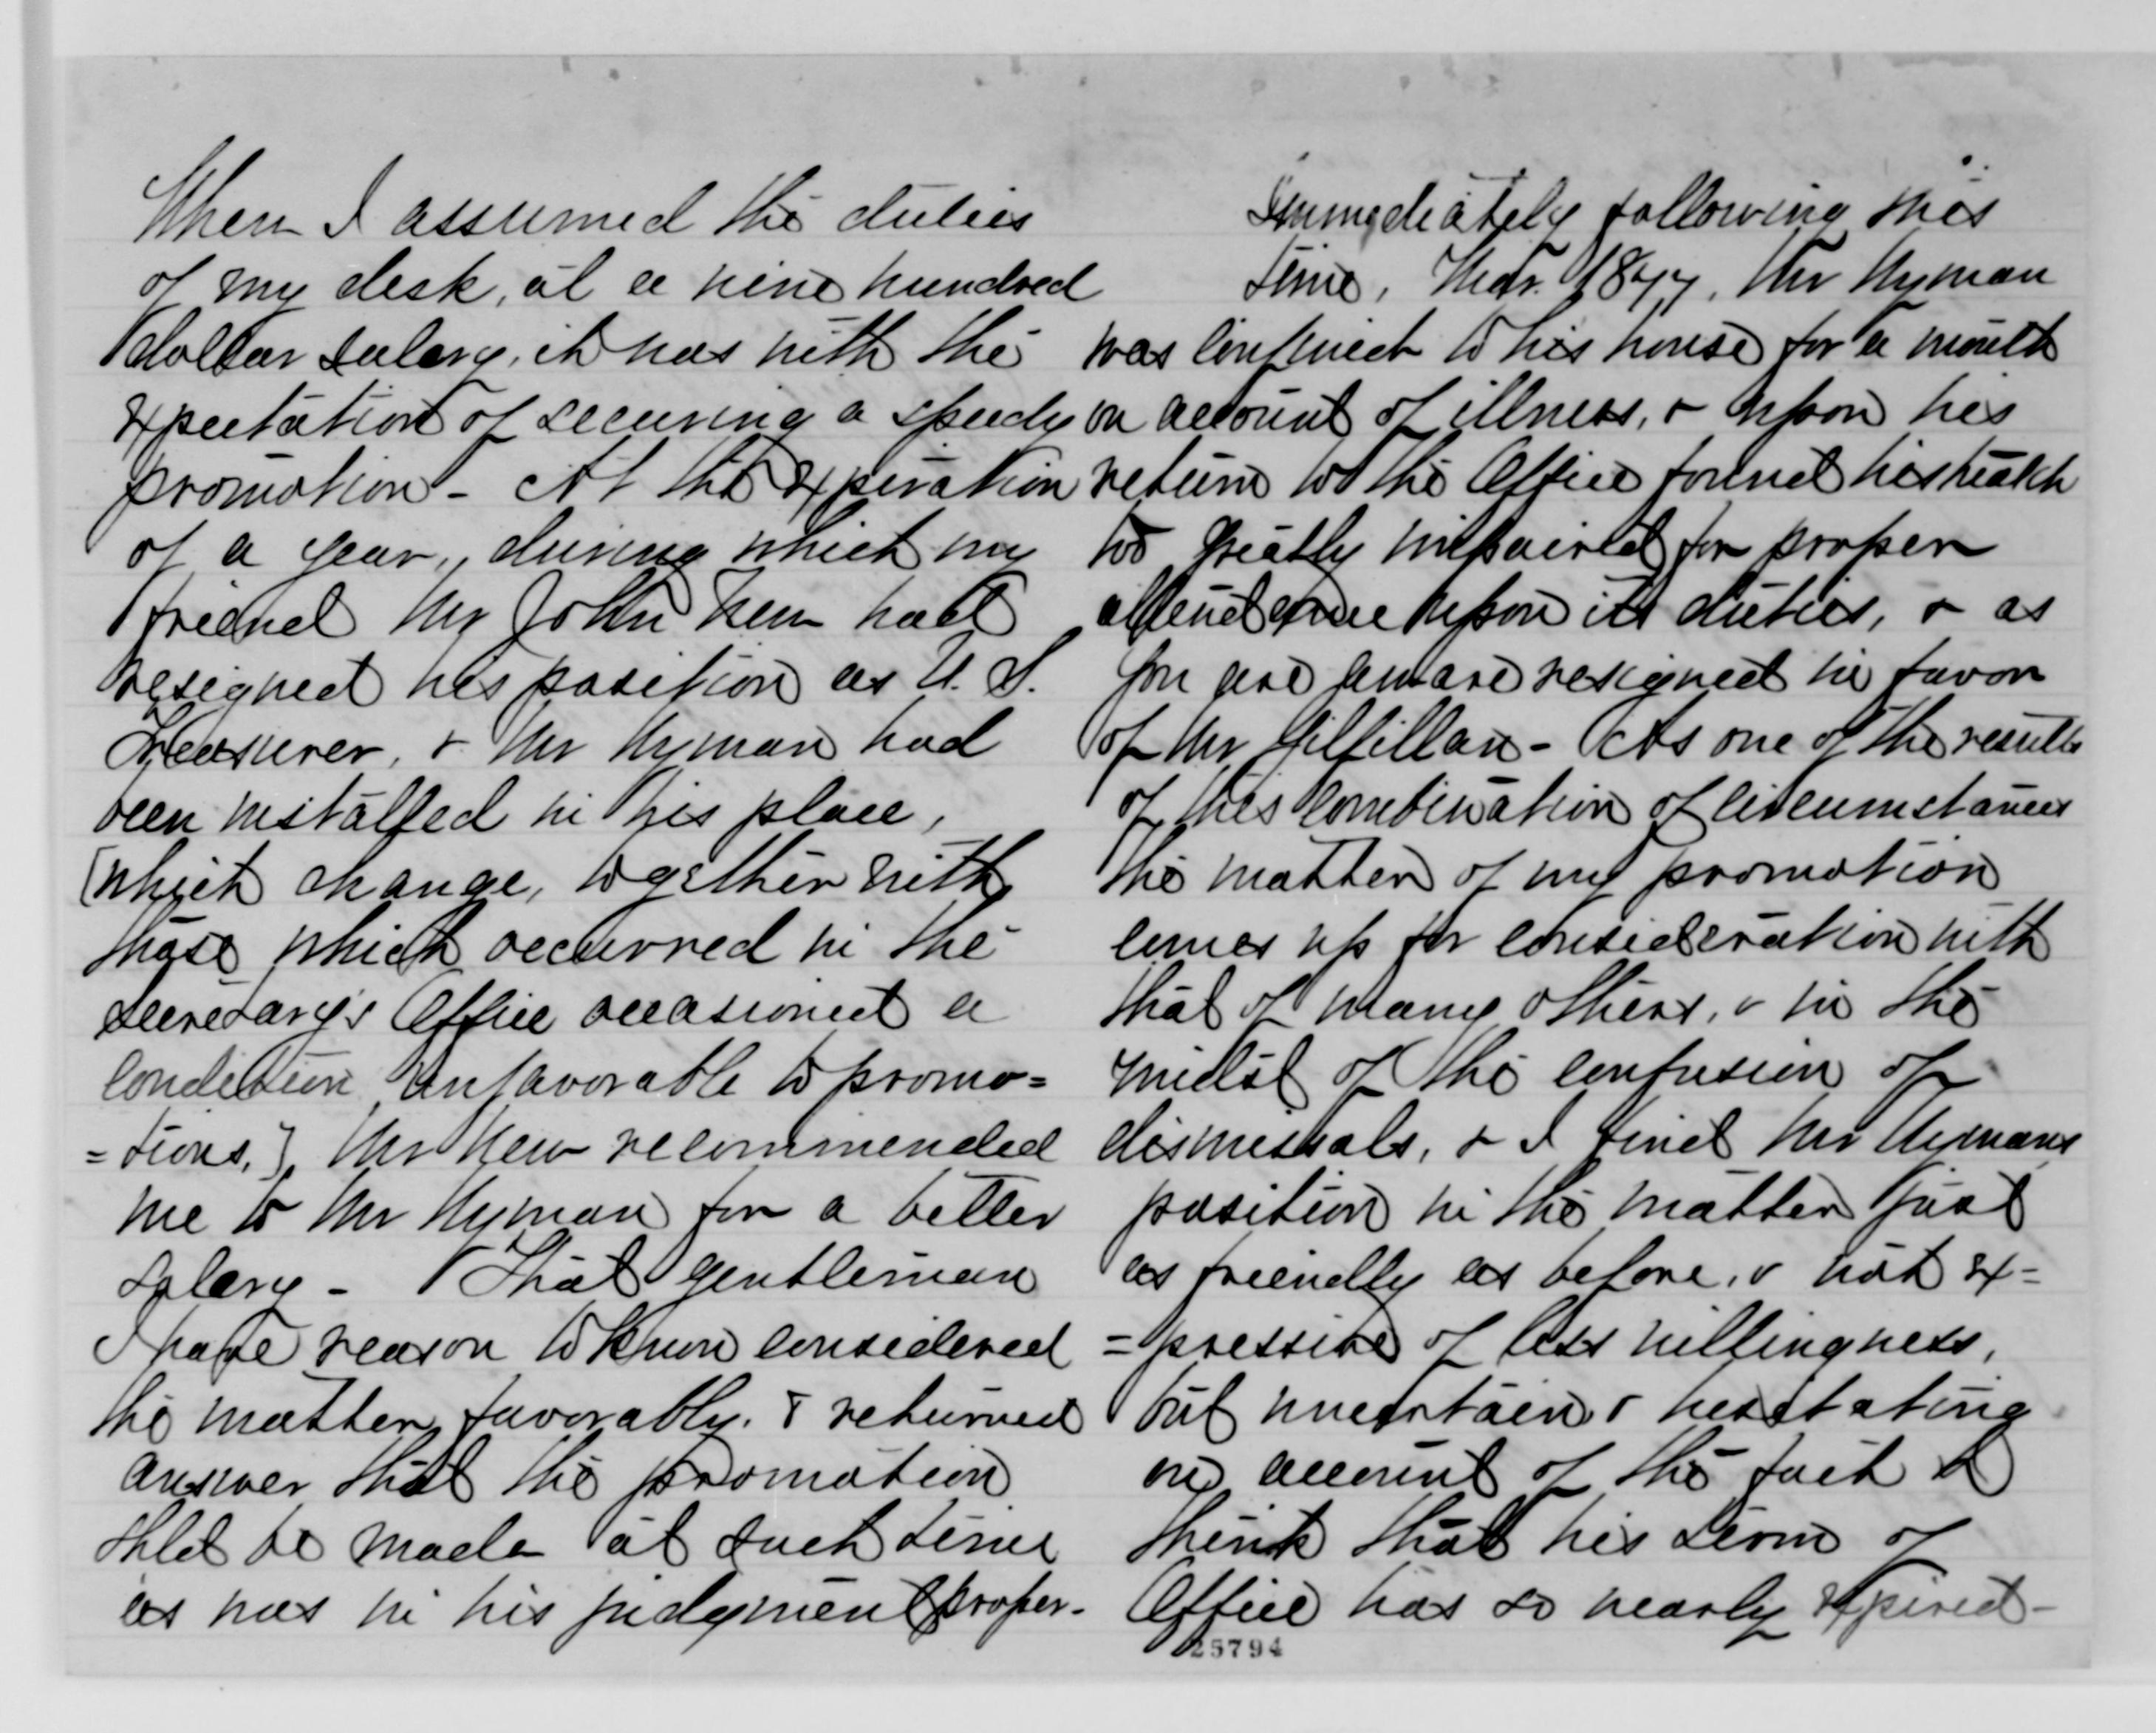 When I assumed the duties
of my desk, at a nine hundred
dollar salary, it was with the
expectation of securing a speedy
promotion - At the expiration
of a year, during which my
friend Mr John New had
resigned his position as U. S.
Treasurer, & Mr Wyman had
been installed in his place,
[which change, together with
those which occurred in the
Secretary's Office occasioned a
condition unfavorable to promo=
=tions,] Mr New recommended
me to Mr Wyman for a better
salary - That gentleman
I have reason to know considered
the matter favorably, & returned
answer that the promotion
shld be made at such time
as was in his judgment proper.
Immediately following this
time, Mar. 1877, Mr Wyman
was confined to his house for a month
on account of illness, & upon his
return to the Office found his health
too greatly impaired for proper
attendance upon its duties, & as
you are aware resigned in favor
of Mr Gilfillan - As one of the results
of this combination of circumstances
the matter of my promotion
comes up for consideration with
that of many others, & in the
midst of the confusion of
dismissals, & I find Mr Wymans
position in the matter just
as friendly as before, & not ex=
=pressive of less willingness,
but uncertain & hesitating
on account of the fact I
think that his term of
Office has so nearly expired -
25794